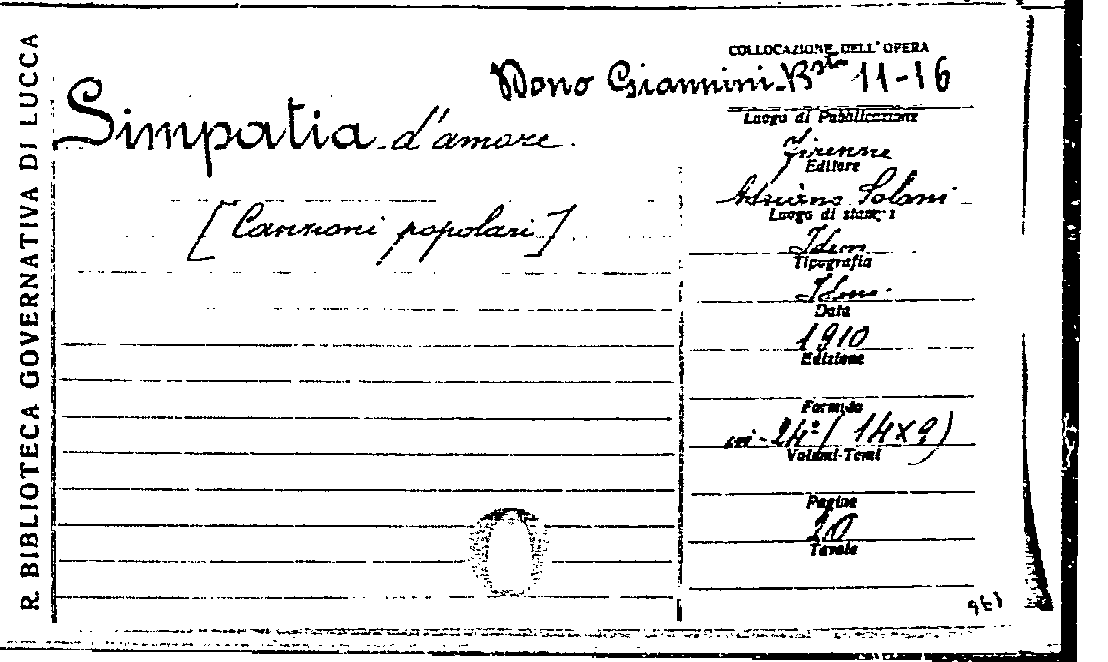 R. BIBLIOTECA GOVERNATIVA DI LUCCA
COLLOCAZIONE DELL'OPERA
Dono Giannini-Bsta 11-16
Simpatia d'amore.
[Canzoni popolari].
Luogo di Pubblicazione
Firenze
Editore
Adriano Salani
Luogo di stampa
Idem
Tipografia
Idem
Data
1910
Edizione
Formato
in-24° (14x9)
Volumi-Tomi
Pagine
20
Tavole